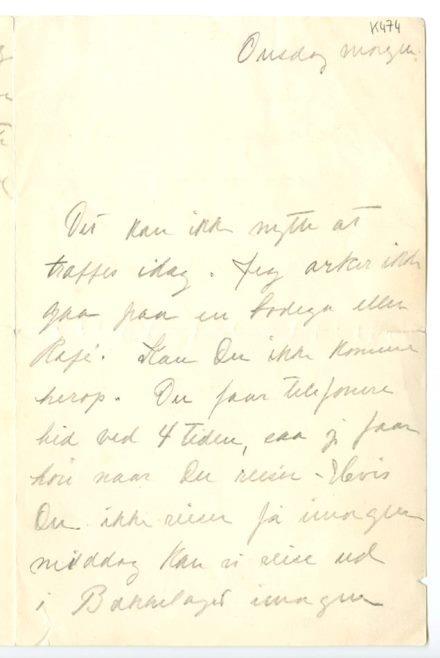 K474
Onsdag morgen.
Det kan ikke nytte at
træffes idag. Jeg orker ikke
gaa paa en bodega eller
Kafé. Kan Du ikke komme
herop. Du faar telefonere
hid ved 4 tiden, saa jeg faar
høre naar Du reiser – Hvis
Du ikke reiser før imorgen
middag kan vi reise ud
i Bækkelaget imorgen